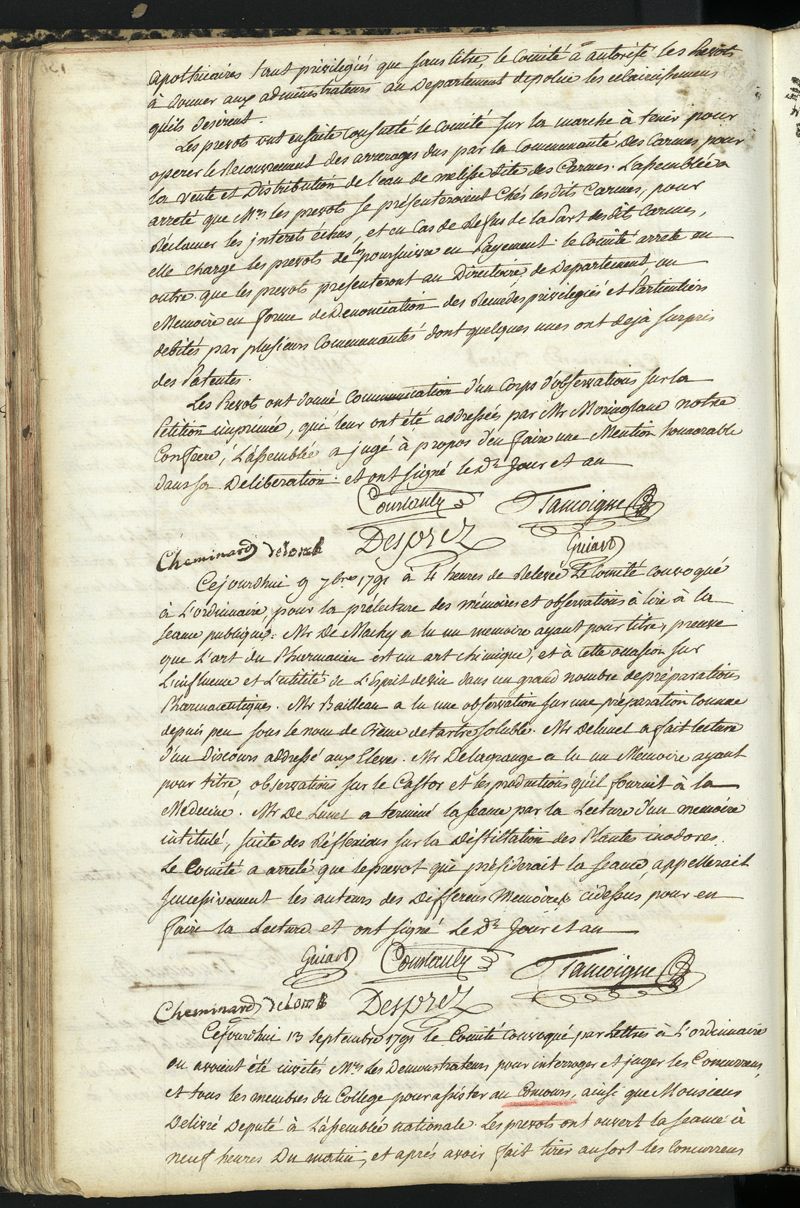 apothicaires tant privilegiés que sans titre, le Comité à autorisé les Prevots
à donner aux administrateurs au Departement de police les eclaircissemens
qu'ils desirent.
Les prevots ont ensuite consulté le Comité sur la marche à tenir pour
operer le Recouvrement des arrerages dus par la Communauté des Carmes pour
la vente et Distribution de l'eau de melisse dite des Carmes. L'assemblée a
arreté que Mrs les prevots se presenteroient chés les dits Carmes, pour
Réclamer les interets échus, et en Cas de Refus de la Part des dits Carmes,
elle charge les prevots de les poursuivre en Payement. le Comité arrete en
outre que les prevots presenteront au Directoire de Departement un
Memoire en forme de Denonciation des Remédes privilegiés et Particuliers
debités par plusieurs Communautés dont quelques unes ont dejà surpris
des Patentes.
Les Prevots ont donné Communication d'un Corps d'observations sur la
Petition imprimée, qui leur ont été addressés par Mr Moringlane notre
Confrere, L'assemblée a jugé à propos d'en faire une Mention honorable
dans sa Deliberation. et ont signé le Dt Jour et an
Coustauly Tamoigne
Cheminard Delorab Desprez Guiard
Cejourdhui 9 7bre 1791 à 4 heures de Relevée Le Comité convoqué
à L'ordinaire, pour la prélecture des mémoires et observations à lire à la
seance publique. Mr De Machy a lu un memoire ayant pour titre, preuve
que L'art du Pharmacien est un art chimique, et à cette occasion sur
L'influence et L'utilité de L'Esprit de vin dans un grand nombre de préparations
Pharmaceutiques. Mr Bailleau a lu une observation sur une préparation connue
depuis peu sous le nom de Crême de tartre soluble. Mr Delunel a fait lecture
d'un Discours addressé aux Eleves. Mr Delagrange a lu un Memoire ayant
pour titre, observations sur le Castor et les productions qu'il fournit à la
Medecine. Mr De Lunel a terminé la seance par la Lecture d'un memoire
intitulé, suite des Réflexions sur la Distillation des Plantes inodores.
Le Comité a arreté que le prevot qui présiderait la seance appellerait
successivement les auteurs des Differens Memoires cidessus pour en
faire la Lecture et ont signé Le Dt Jour et an
Guiard Coustauly Tamoigne
Cheminard Desprez
Cejourdhui 13 septembre 1791 le Comité convoqué par Lettres à L'ordinaire
ou avoient été invités Mrs les Demonstrateurs pour interroger et juger les Concurrens,
et tous les membres du College pour assister au Concours, ainsi que Monsieur
Delivré Deputé à L'assemblée nationale. Les prevots ont ouvert la seance à
neuf heures Du matin, et après avoir fait tirer au sort les Concurrens